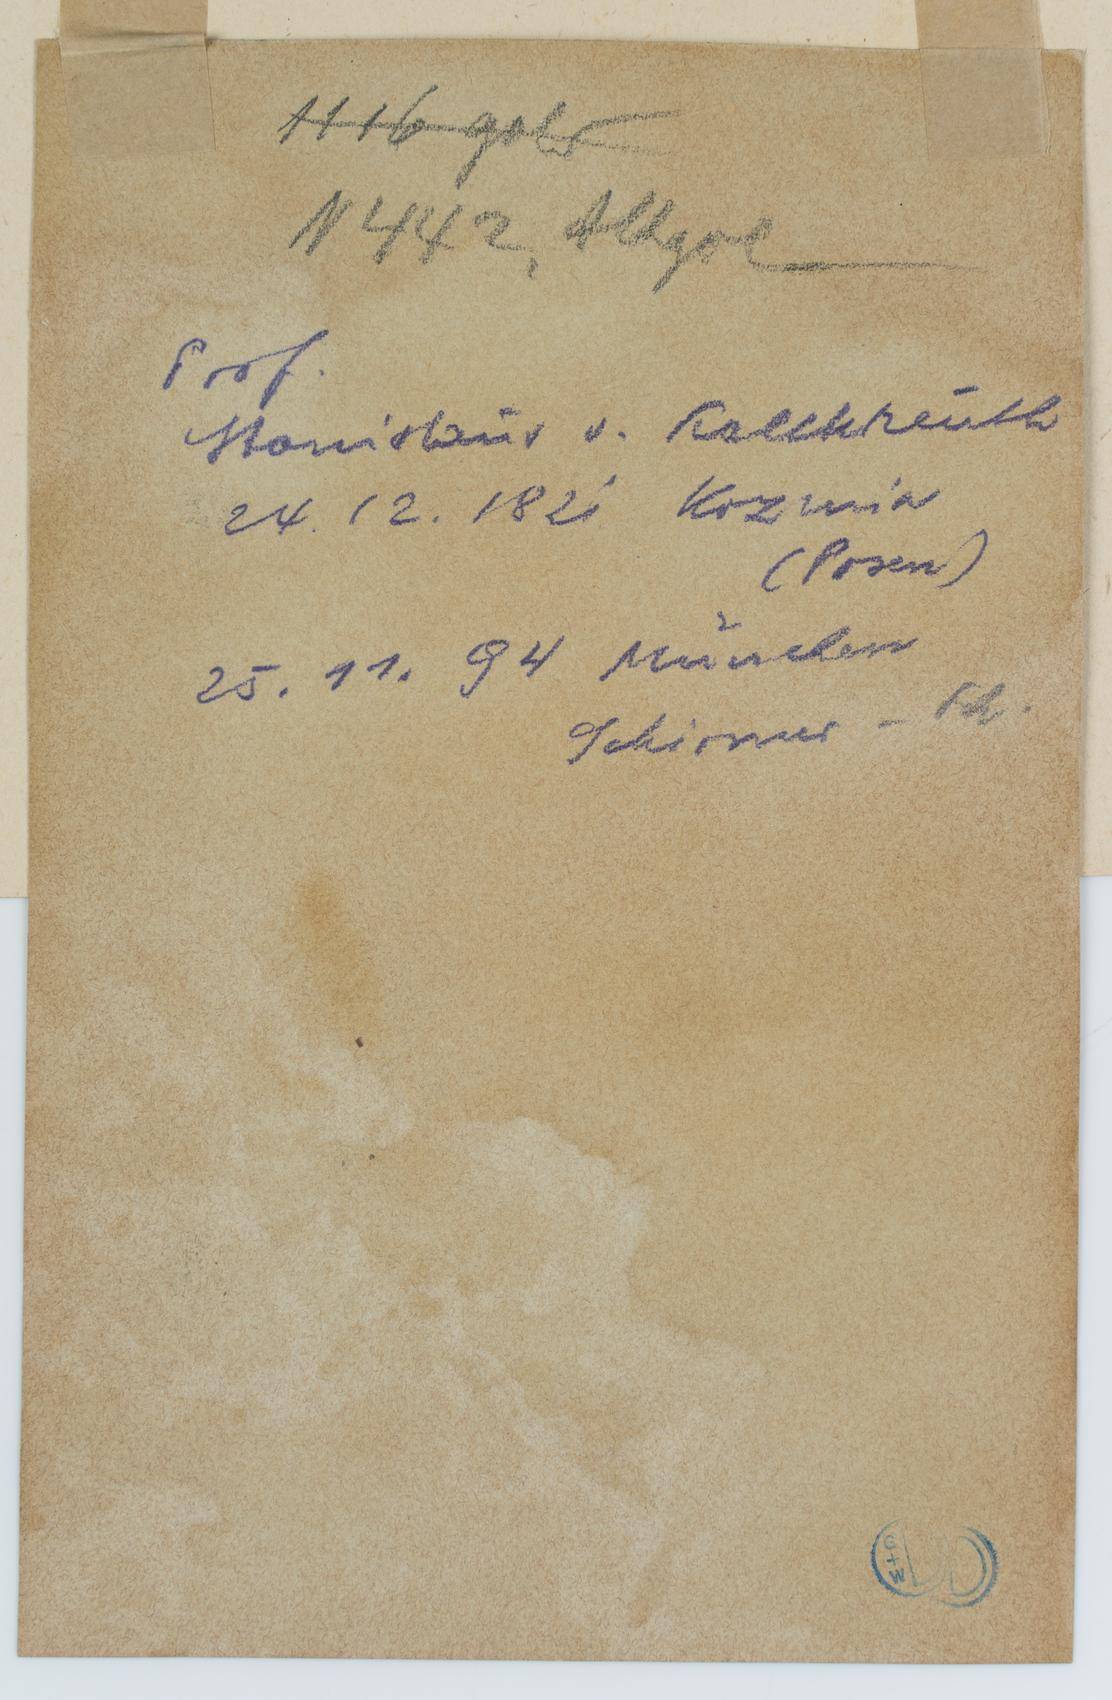 1116 gold
N 442, Altgol
Prof.
Stanislaus v. Kalckreuth
24. 12. 1821 Kozmin
(Posen)
25. 11. 94 München
Schirmer - Sch.
G+W